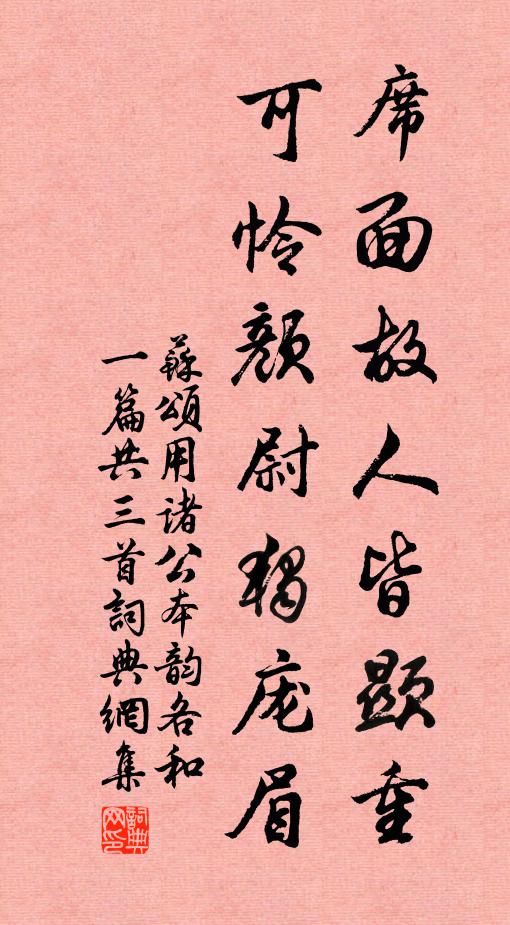 席面故人皆顯重
可怜顏尉獨庞眉
蘇頌用诸公本韵各和
一篇共三首詞典網集
詞典
网印